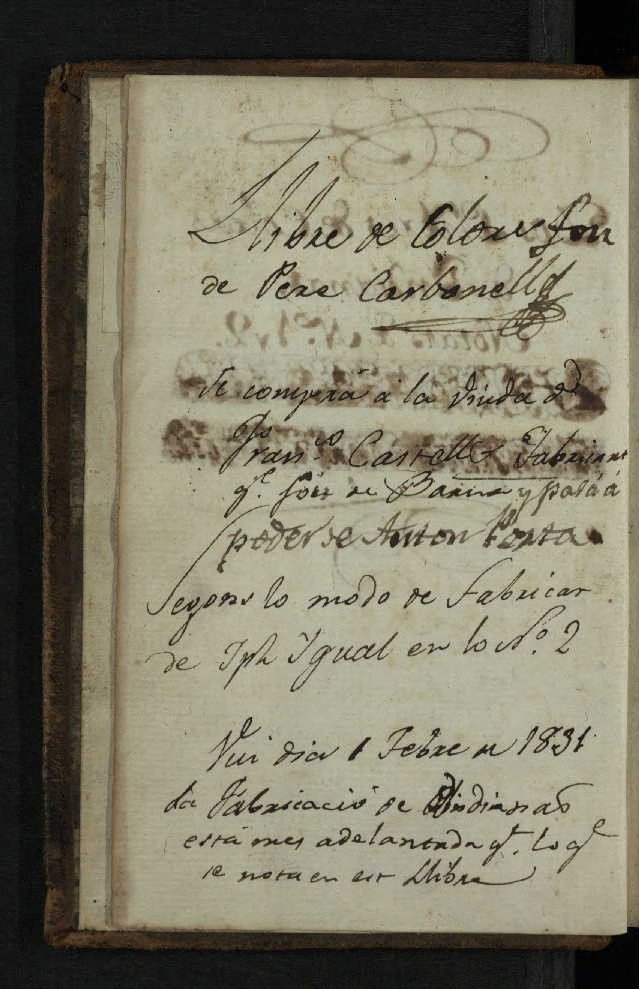 Llibre de Colors fou
de Pere Carbonell
Se comprá á la Viuda de
Fran.co Castells Fabricant
q.e fou de Barna y pasá á
poder de Anton Porta
Segons lo modo de Fabricar
de Jph Ygual en lo N.o 2
Vui dia 1 Febre de 1831
la Fabricació de Yndianas
está mes adelantada q.e lo q.e
se nota en est Llibre